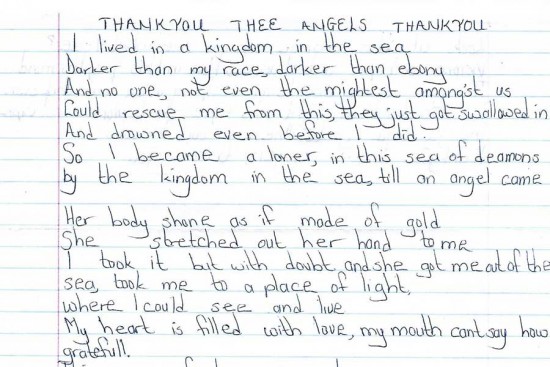 THANKYOU THEE ANGELS THANKYOU
I lived in a kingdom in the sea
Darker than my race, darker than ebony
And no one, not even the mightest amongst us
Could rescue me from this, they just got swallowed in
And drowned even before I did.
So I became a loner, in this sea of deamons
by the kingdom in the sea, till an angel came
Her body shone as if made of gold
She stretched out her hand to me
I took it but with doubt and she got me out of the
sea, took me to a place of light,
where I could see and live
My heart is filled with love, my mouth cant say how
gratefull.